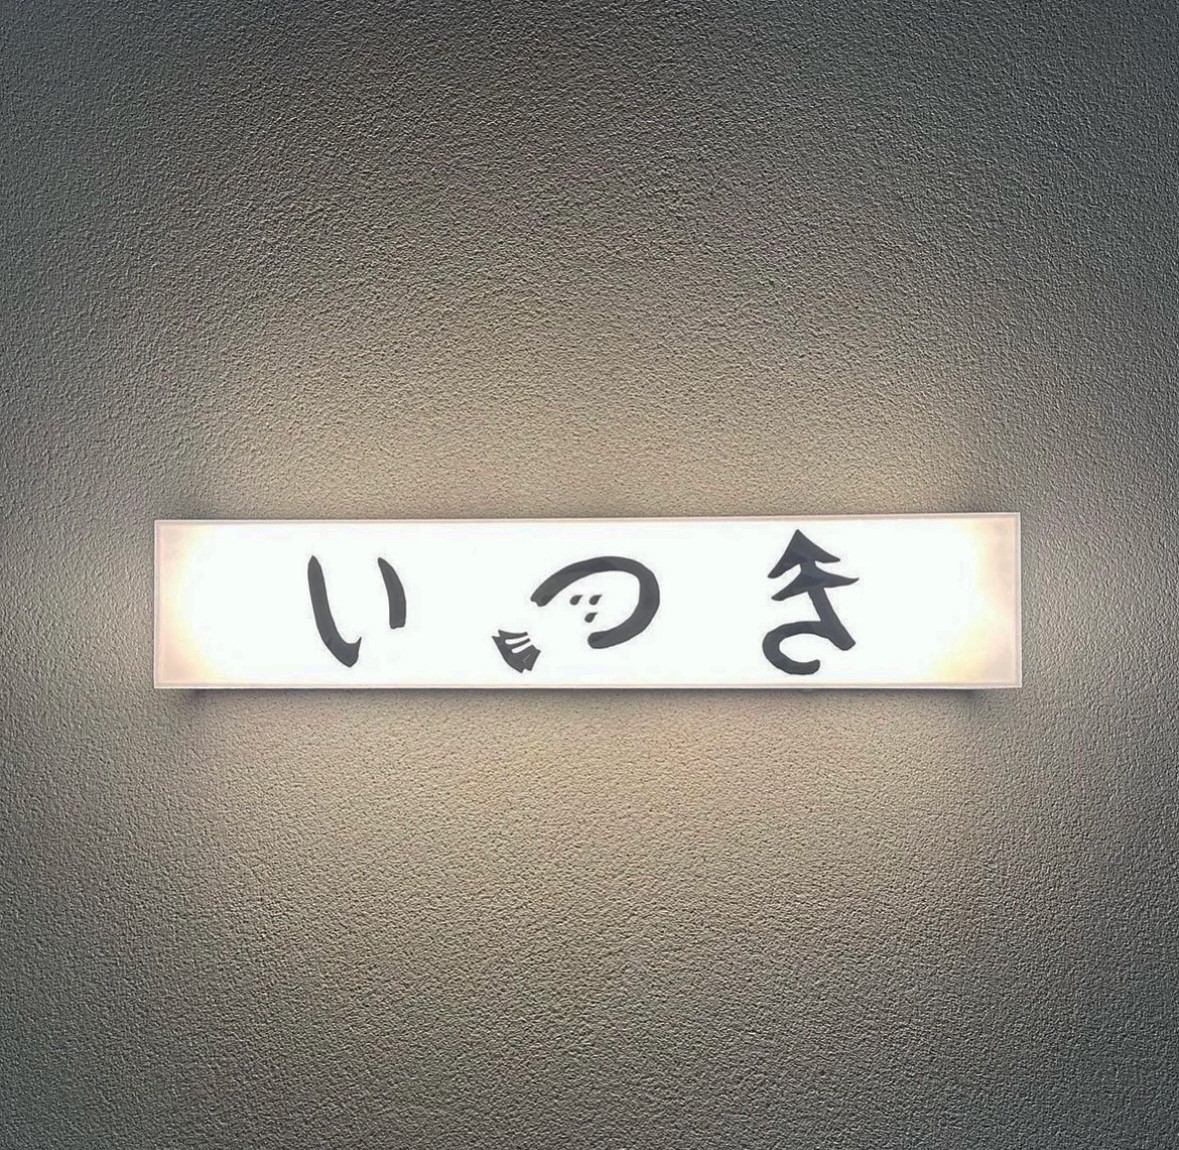 いつき